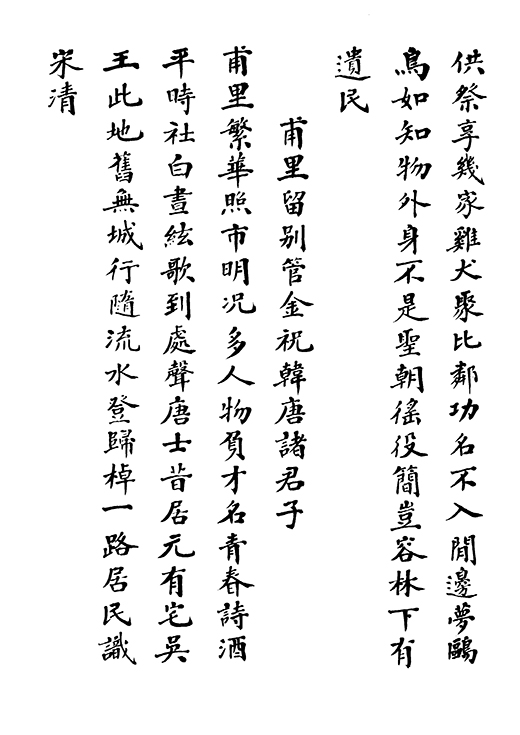 供祭享幾家雞犬聚比鄰功名不入閒邊夢鷗
鳥如知物外身不是聖朝徭役簡豈容林下有
遺民
甫里留別管金祝韓唐諸君子
甫里繁華照市明况多人物負才名青春詩酒
平時社白晝絃歌到處聲唐士昔居元有宅吳
王此地舊無城行隨流水登歸棹一路居民識
宋清